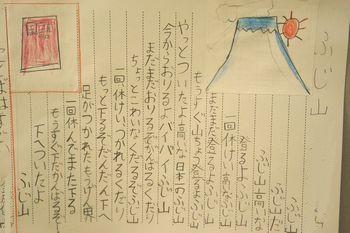 ふじ山
ふじ山だ
ふじ山高いな
登るよふじ山
一回休けい高いなふじ山
まだまだ登るよふじ山
もうすぐ山ちょう登るよふじ山
やっとついたよ高いな日本のふじ山
今からおりるよバイバイふじ山
まだまだおりるぞがんばるぞふじ山
ちょっとこわいなくだるぞふじ山
一回休けいつかれるくだり
もっと下るぞだんだん下へ
足がつかれたもうげん界
一回休んでまた下る
もうすぐ下だがんばるぞ
下へついたよ
ふじ山